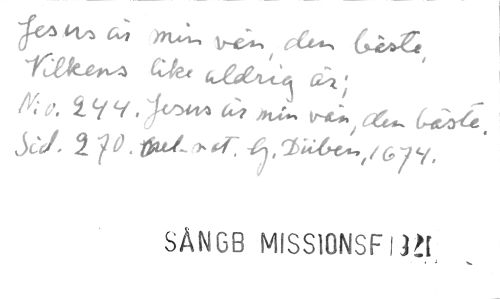 Jesus är min vän, den bäste,
Vilkens like aldrig är;
N:o. 244. Jesus är min vän, den bäste.
Sid. 270. mel. not. G. Düben, 1674.
SÅNGB MISSIONSF